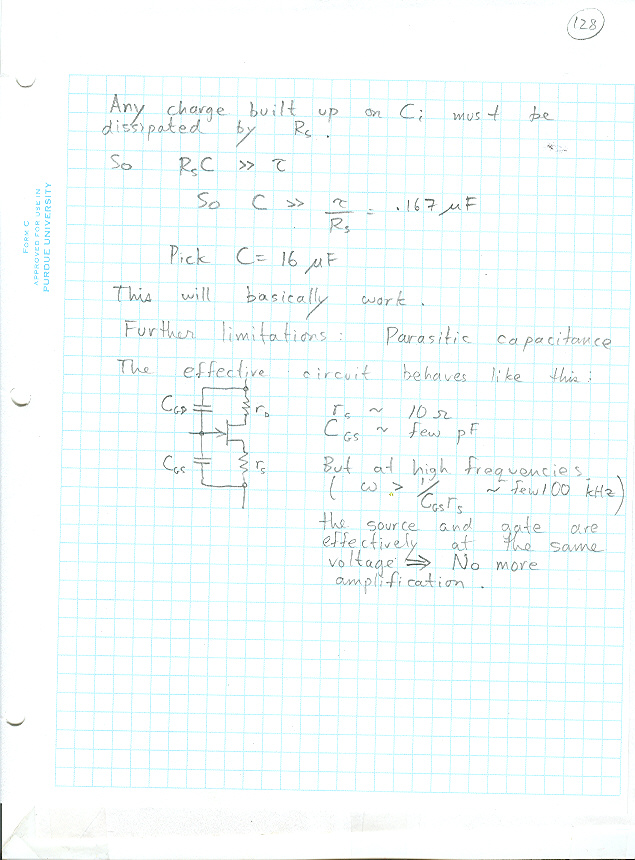 128
Any charge built up on Ci must be
dissipated by Rs.
So RsC >> τ
So C >> τ/Rs = .167 μF
Pick C = 16 μF
This will basically work.
Further limitations: Parasitic capacitance
The effective circuit behaves like this:
CGD rD
CGS rs
rs ~ 10 Ω
CGS ~ few pF
But at high frequencies
( ω > 1/CGSrs ~ few 100 kHz)
the source and gate are
effectively at the same
voltage ⇒ No more
amplification.
FORM C
APPROVED FOR USE IN
PURDUE UNIVERSITY